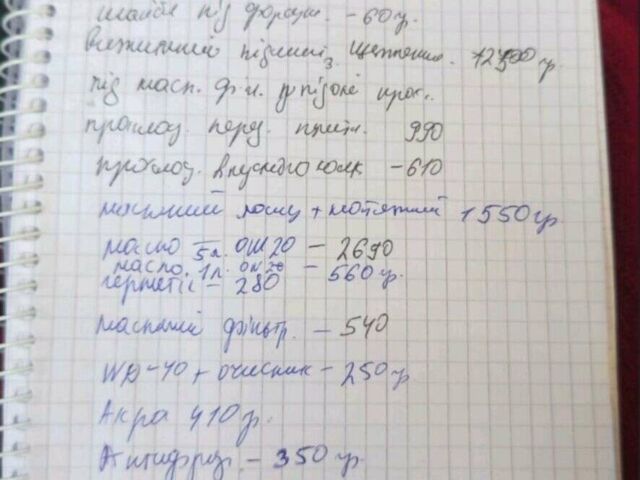 шайби під форсун. - 60 г.
підшип. з щепленню. 12700 гр.
під масл. філ. прок..
проклад. перед. 990
проклад. впускного колек - 610
ланцюг + натяжний 1550 гр
масло 5л. OW20 - 2690
масло. 1л. OW20 - 560 гр.
герметік - 280
масляний фільтр. - 540
WD-40 + очисник - 250 гр
Акра 410 г.
Антифриз - 350 гр